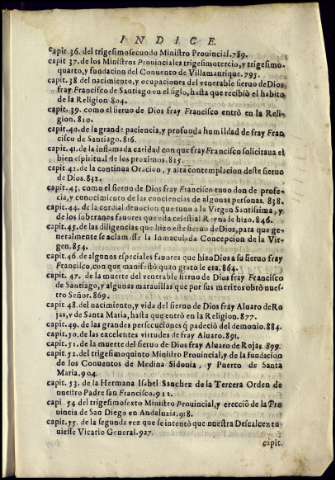 INDICE.
capit. 36. del trigesimosecundo Ministro Prouincial. 789.
capit 37. de los Ministros Prouinciales trigesimotercio, y trigesimo-
quarto, y fundacion del Conuento de Villamanrique. 793.
capit. 38. del nacimiento, y ocupaciones del venerable sieruo de Dios
fray Francisco de Santiago en el siglo, hasta que recibió el habito
de la Religion 804.
capit. 39. como el sieruo de Dios fray Francisco entrò en la Reli-
gion. 810.
capit. 40. de la grande paciencia, y profunda humildad de fray Fran
cisco de Santiago. 816.
capit. 41. de la inflamada caridad con que fray Francisco solicitaua el
bien espiritual de los proximos. 825.
capit. 42. de la continua Oracion, y alta contemplacion deste sieruo
de Dios. 832.
capit. 43. como el sieruo de Dios fray Francisco tuuo don de profe-
cia, y conocimiento de las conciencias de algunas personas. 838.
capit. 44. de la cordial deuocion que tuuo a la Virgen Santissima, y
de los sobranos fauores que esta celestial Reyna de hizo. 846.
capit. 45. de las diligencias que hizo este sieruo de Dios, para que ge-
neralmente se aclamasse la Inmaculada Concepcion de la Vir-
gen. 854.
capit. 46. de algunos especiales fauores que hizo Dios a su sieruo fray
Francisco, con que manifestò quato grato le era. 864.
capit. 47. de la muerte del venerable sieruo de Dios fray Francisco
de Santiago, y algunas marauillas que por sus meritos obrò nues-
tro Señor. 869.
capit. 48. del nacimiento, y vida del sieruo de Dios fray Aluaro de Ro
jas, y de Santa Maria, hasta que entrò en la Religion. 877.
capit. 49. de las grandes persecuciones q̃ padeciò del demonio. 884.
capit. 50. de las excelentes virtudes de fray Aluaro. 891.
capit. 51. de la muerte del sieruo de Dios fray Aluaro de Rojas. 899.
capit. 52. del trigesimoquinto Ministro Prouincial, y de la fundacion
de los Conuentos de Medina Sidonia, y Puerto de Santa
Maria. 904.
capit. 53. de la Hermana Isabel Sanchez de la Tercera Orden de
nuestro Padre san Francisco. 912.
capi. 54 del trigesimosexto Ministro Prouincial, y erecciō de la Pro
uincia de San Diego en Andaluzia. 918.
capit. 55. de la segunda vez que se intentò que nuestra Descalcez tu
uiesse Vicario General. 927.
capit.